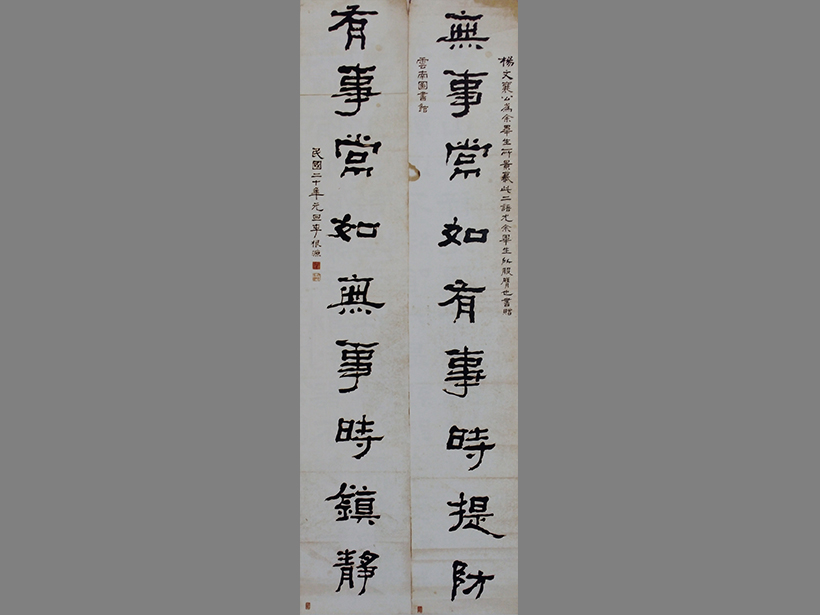 楊文襄公為余畢生所景慕此二語尤余畢生所服膺也書贈
無事常如有事時提防
雲南圖書館
有事常如無事時鎮靜
民國二十年元旦李根源